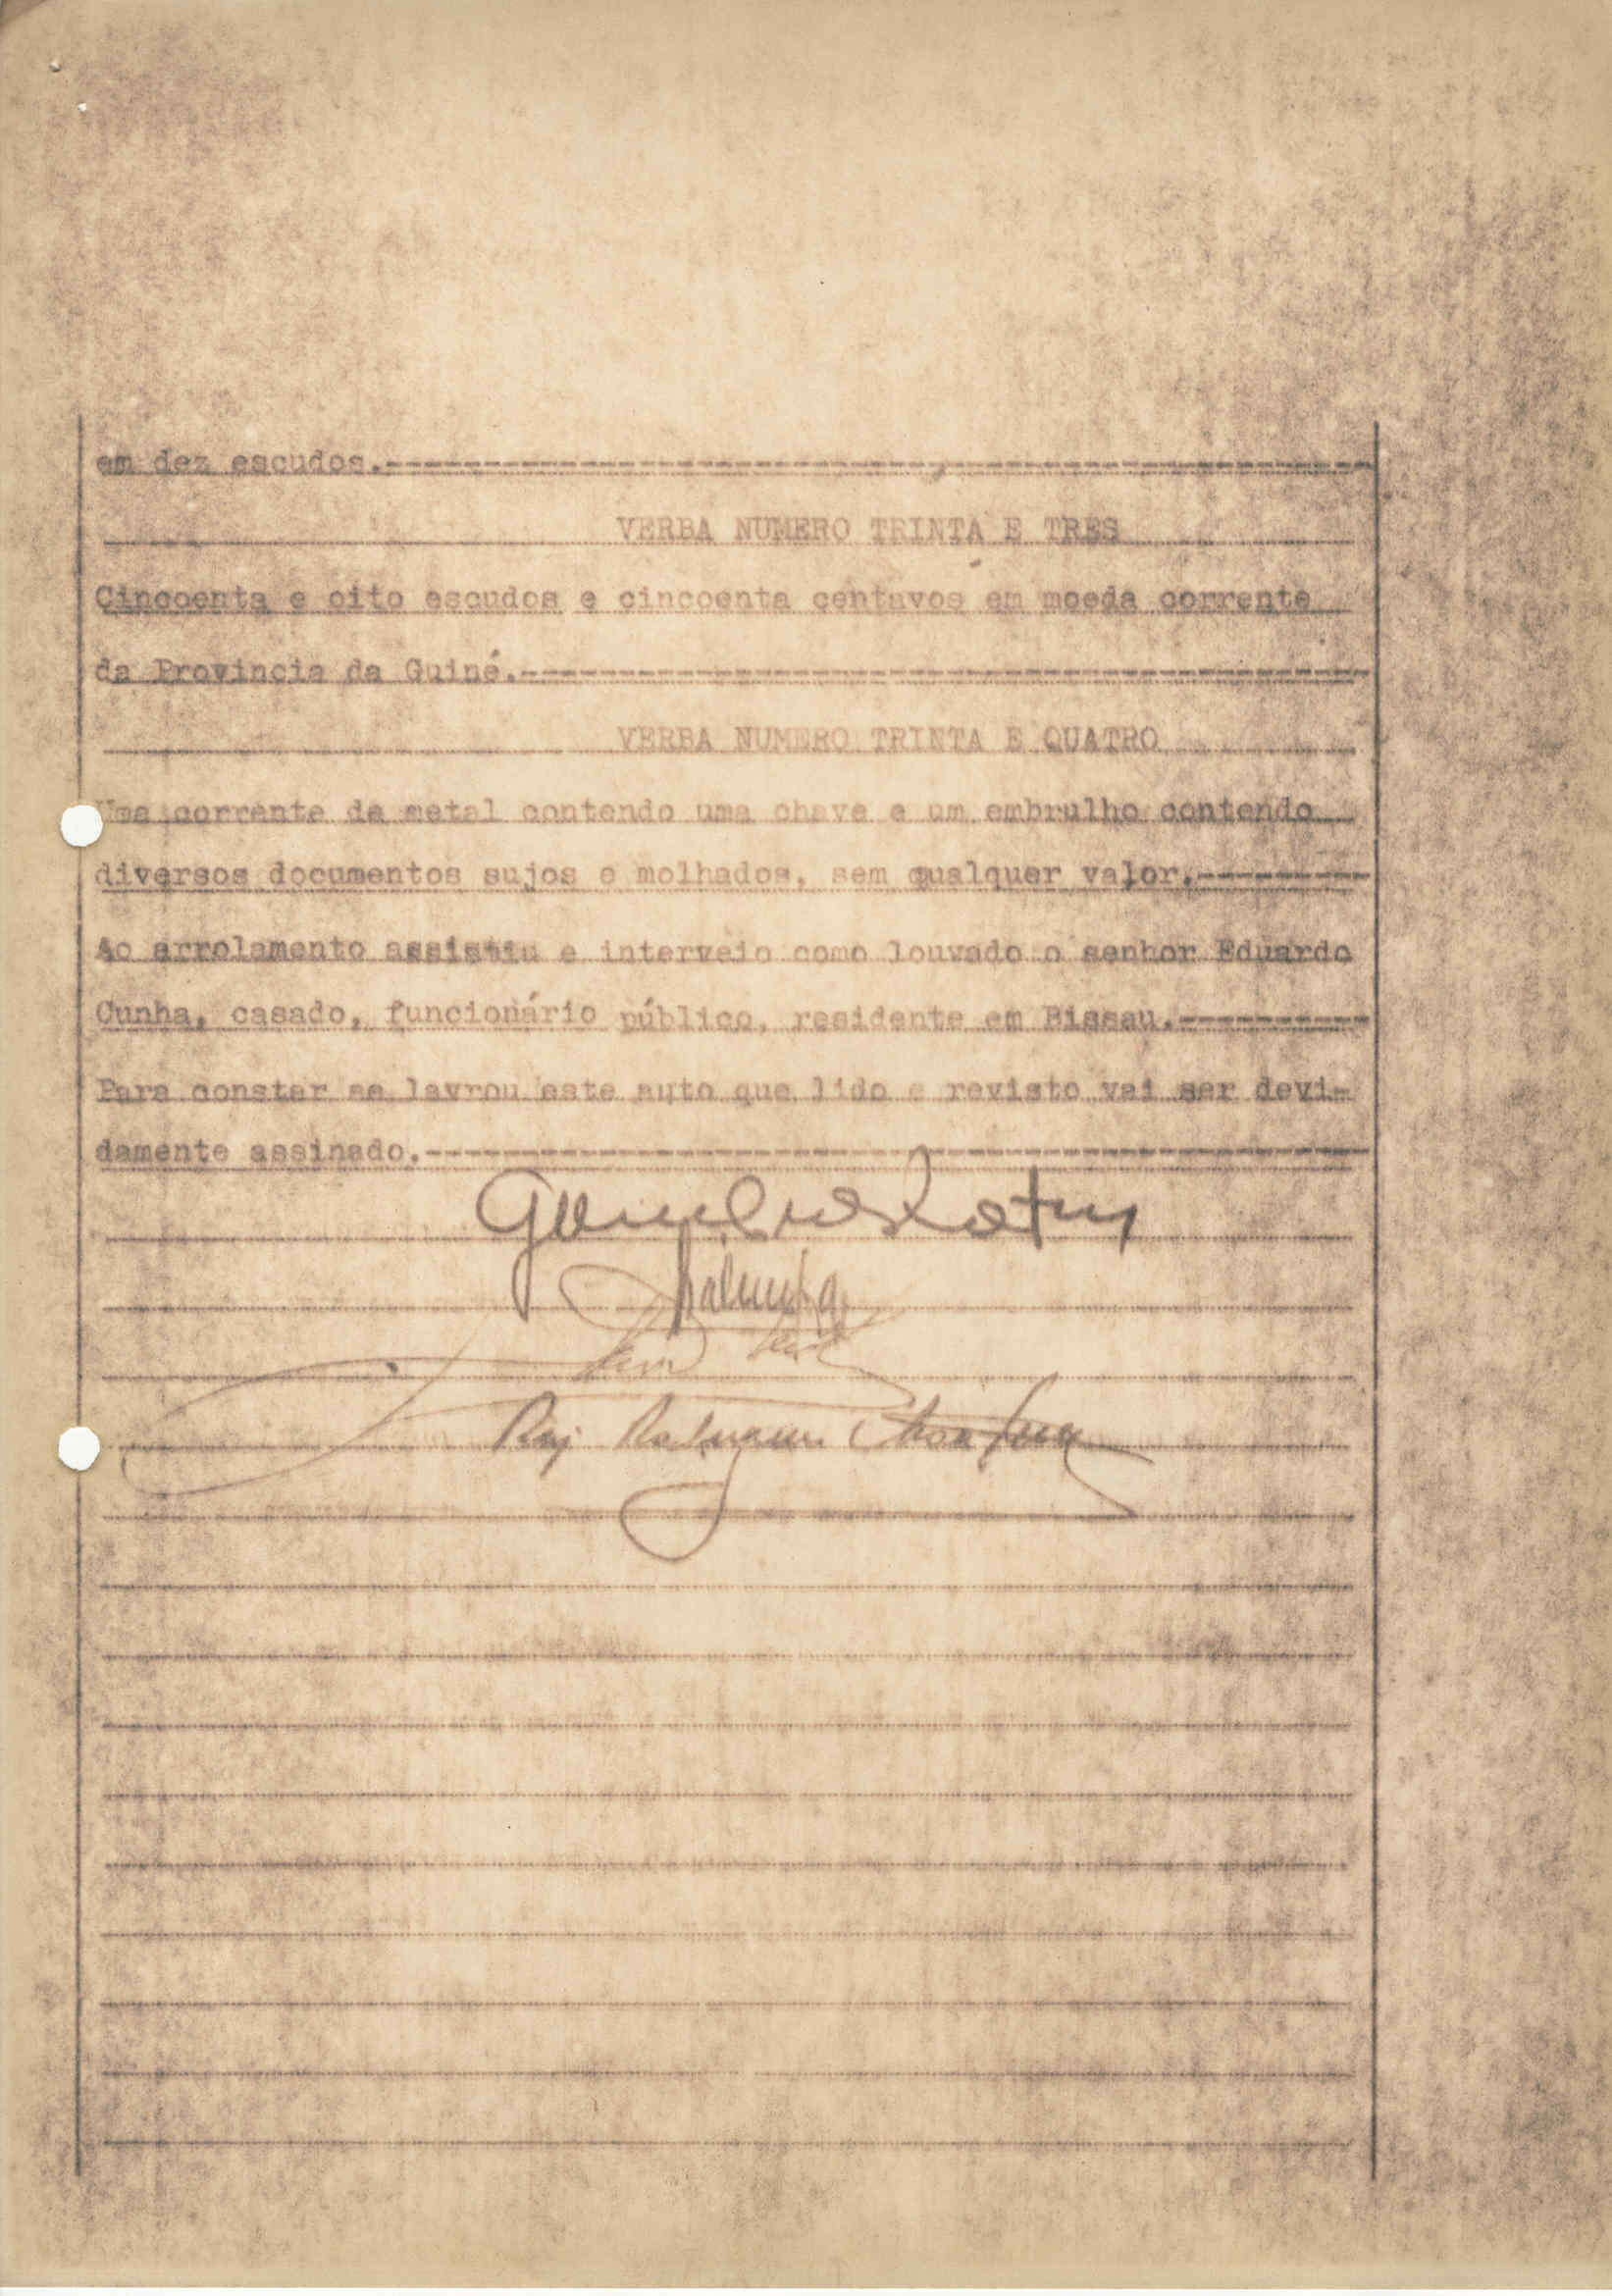 em dez escudos.---
VERBA NUMERO TRINTA E TRES
Cincoenta e oito escudos e cincoenta centavos em moeda corrente
da Provincia da Guiné.---
VERBA NUMERO TRINTA E QUATRO
Uma corrente de metal contendo uma chave e um embrulho contendo
diversos documentos sujos e molhados, sem qualquer valor.---
Ao arrolamento assistiu e interveio como louvado o senhor Eduardo
Cunha, casado, funcionário público, residente em Bissau.---
Para constar se lavrou este auto que lido e revisto vai ser devi-
damente assinado.---